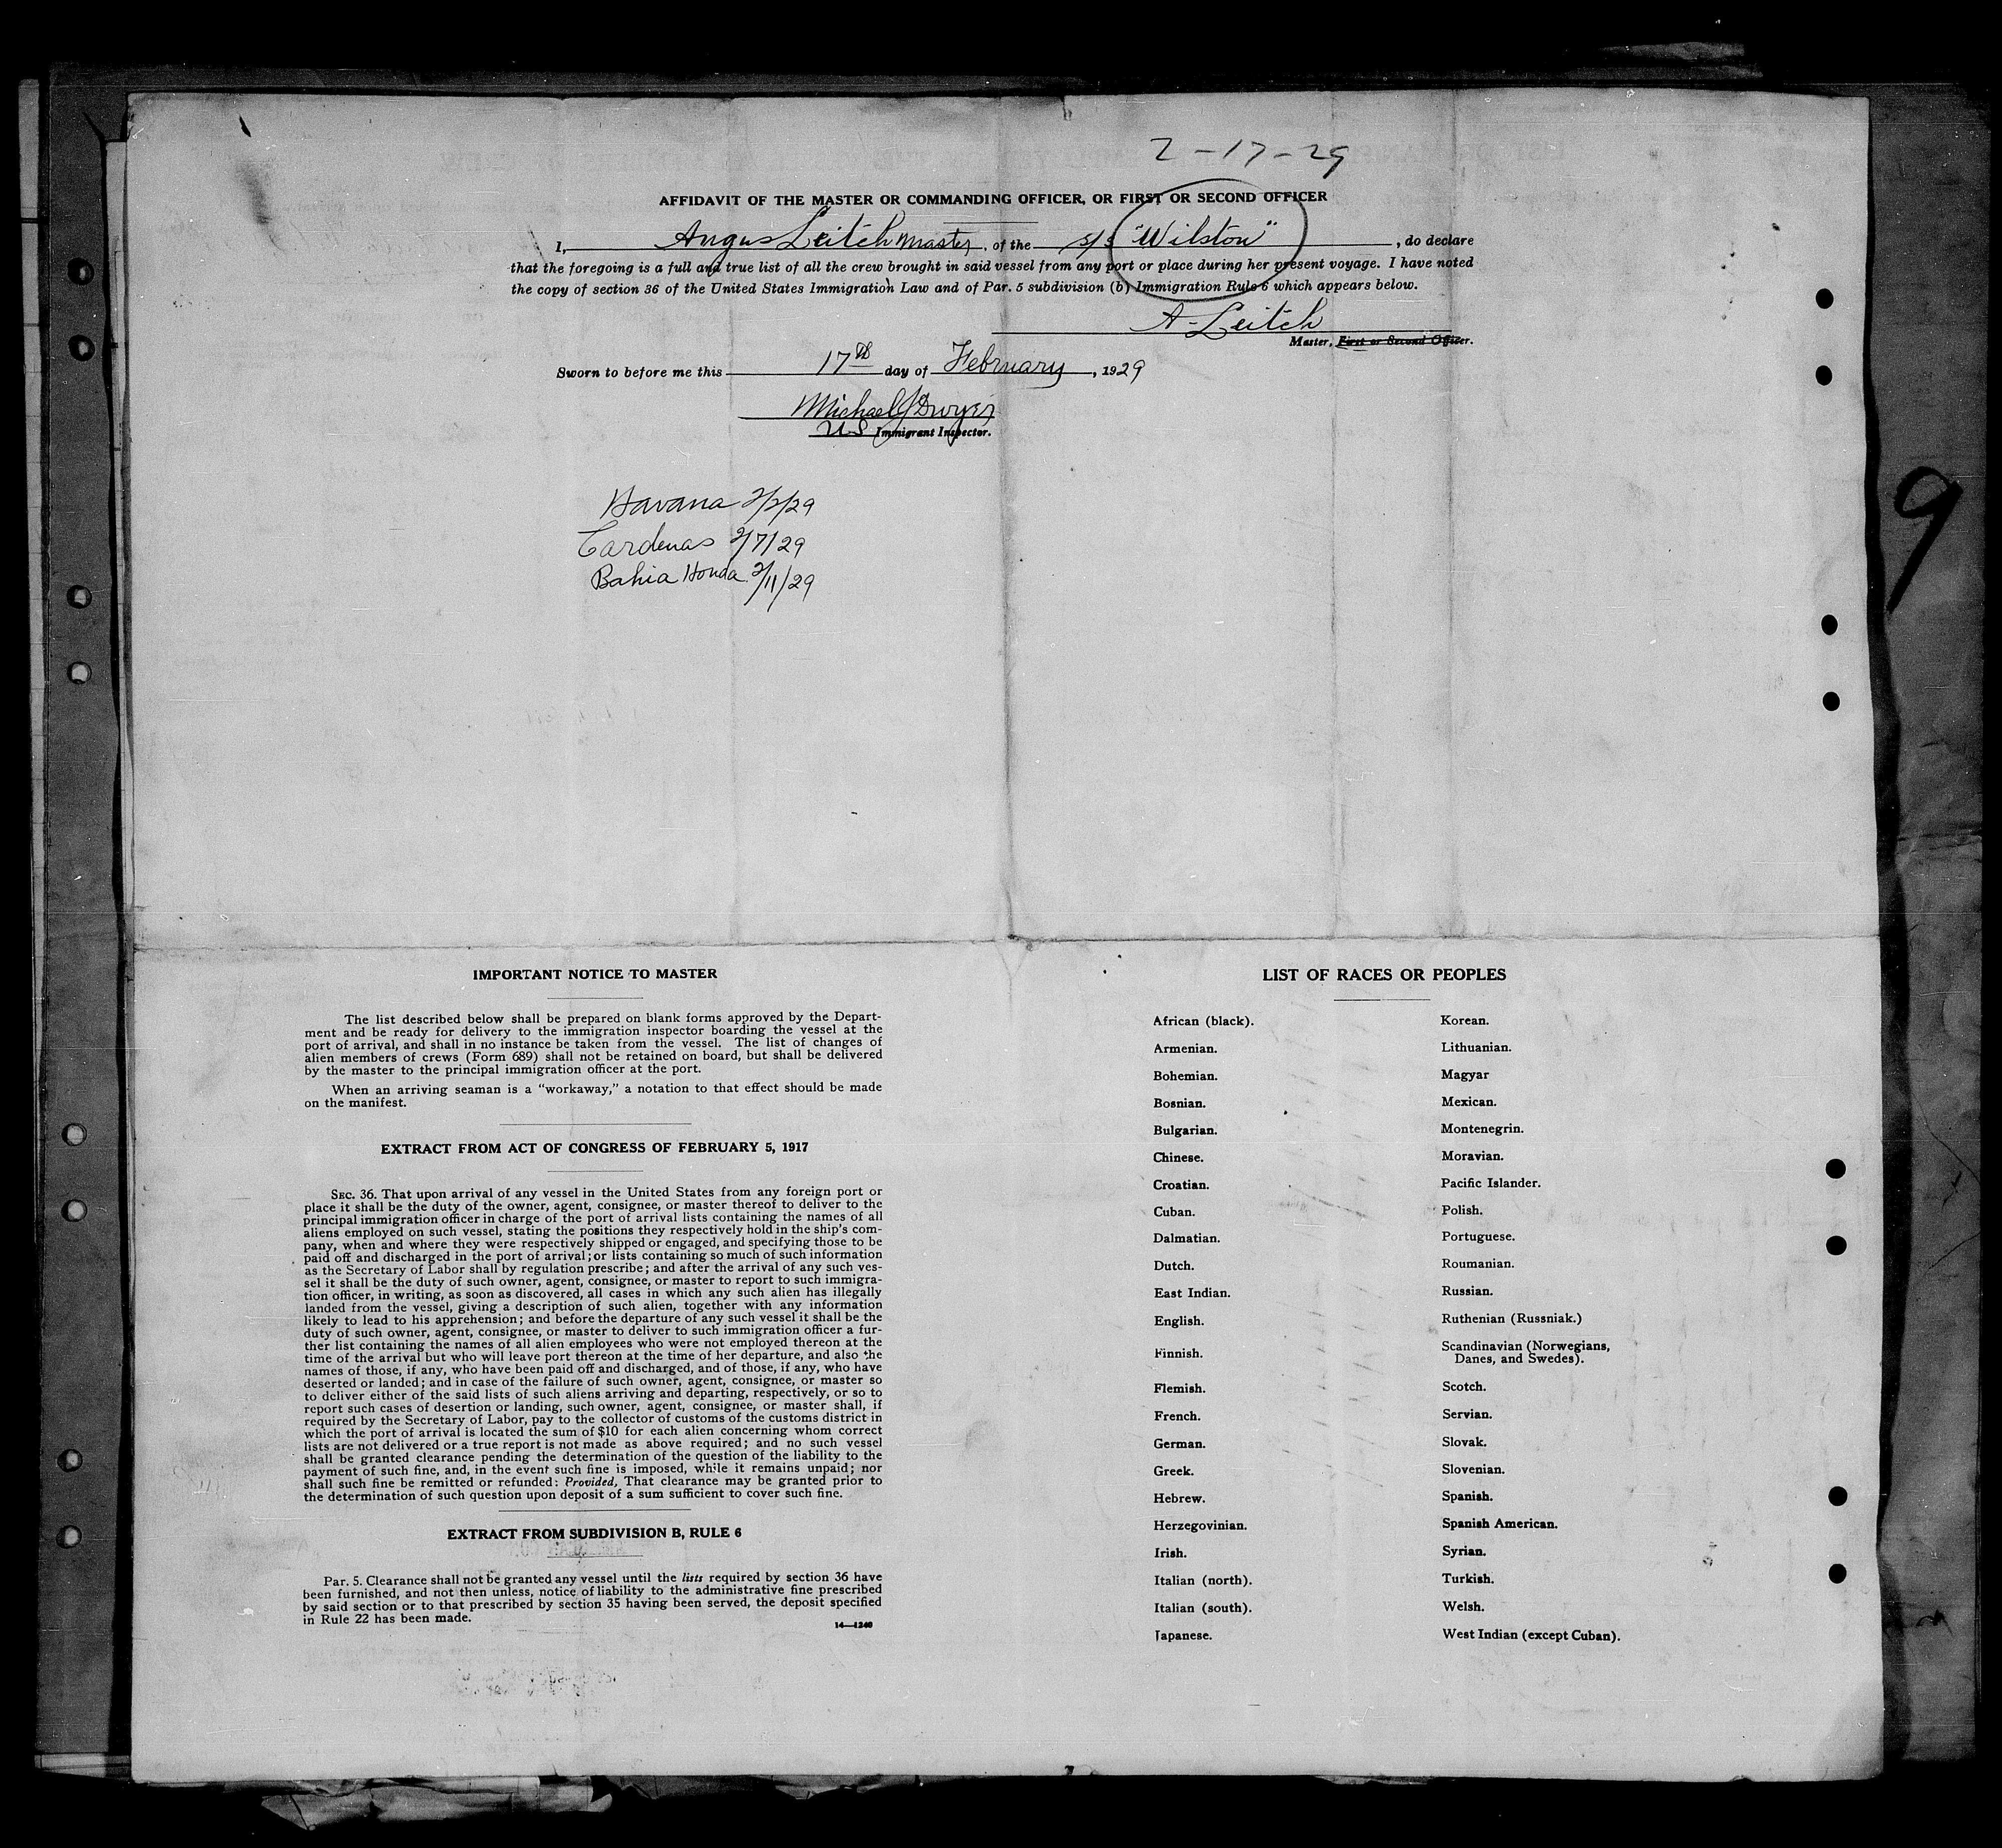 2-17-29
AFFIDAVIT OF THE MASTER OR COMMANDING OFFICER, OR FIRST OR SECOND OFFICER
I, Angus Leitch Master, of the S/S "Wilston", do declare
that the foregoing is a full and true list of all the crew brought in said vessel from any port or place during her present voyage. I have noted
the copy of section 36 of the United States Immigration Law and of Par. 5 subdivision (b) Immigration Rule 6 which appears below.
A. Leitch
Master, First or Second Officer.
Sworn to before me this 17th day of February, 1929
Michael J Dwyer
US Immigrant Inspector.
Havana 2/2/29
Cardenas 2/7/29
Bahia Honda 2/11/29
9
IMPORTANT NOTICE TO MASTER
The list described below shall be prepared on blank forms approved by the Depart-
ment and be ready for delivery to the immigration inspector boarding the vessel at the
port of arrival, and shall in no instance be taken from the vessel. The list of changes of
alien members of crews (Form 689) shall not be retained on board, but shall be delivered
by the master to the principal immigration officer at the port.
When an arriving seaman is a "workaway," a notation to that effect should be made
on the manifest.
EXTRACT FROM ACT OF CONGRESS OF FEBRUARY 5, 1917
SEC. 36. That upon arrival of any vessel in the United States from any foreign port or
place it shall be the duty of the owner, agent, consignee, or master thereof to deliver to the
principal immigration officer in charge of the port of arrival lists containing the names of all
aliens employed on such vessel, stating the positions they respectively hold in the ship's com-
pany, when and where they were respectively shipped or engaged, and specifying those to be
paid off and discharged in the port of arrival; or lists containing so much of such information
as the Secretary of Labor shall by regulation prescribe; and after the arrival of any such ves-
sel it shall be the duty of such owner, agent, consignee, or master to report to such immigra-
tion officer, in writing, as soon as discovered, all cases in which any such alien has illegally
landed from the vessel, giving a description of such alien, together with any information
likely to lead to his apprehension; and before the departure of any such vessel it shall be the
duty of such owner, agent, consignee, or master to deliver to such immigration officer a fur-
ther list containing the names of all alien employees who were not employed thereon at the
time of the arrival but who will leave port thereon at the time of her departure, and also the
names of those, if any, who have been paid off and discharged, and of those, if any, who have
deserted or landed; and in case of the failure of such owner, agent, consignee, or master so
to deliver either of the said lists of such aliens arriving and departing, respectively, or so to
report such cases of desertion or landing, such owner, agent, consignee, or master shall, if
required by the Secretary of Labor, pay to the collector of customs of the customs district in
which the port of arrival is located the sum of $10 for each alien concerning whom correct
lists are not delivered or a true report is not made as above required; and no such vessel
shall be granted clearance pending the determination of the question of the liability to the
payment of such fine, and, in the event such fine is imposed, while it remains unpaid; nor
shall such fine be remitted or refunded: Provided, That clearance may be granted prior to
the determination of such question upon deposit of a sum sufficient to cover such fine.
EXTRACT FROM SUBDIVISION B, RULE 6
Par. 5. Clearance shall not be granted any vessel until the lists required by section 36 have
been furnished, and not then unless, notice of liability to the administrative fine prescribed
by said section or to that prescribed by section 35 having been served, the deposit specified
in Rule 22 has been made.
14—1240
LIST OF RACES OR PEOPLES
African (black).
Armenian.
Bohemian.
Bosnian.
Bulgarian.
Chinese.
Croatian.
Cuban.
Dalmatian.
Dutch.
East Indian.
English.
Finnish.
Flemish.
French.
German.
Greek.
Hebrew.
Herzegovinian.
Irish.
Italian (north).
Italian (south).
Japanese.
Korean.
Lithuanian.
Magyar
Mexican.
Montenegrin.
Moravian.
Pacific Islander.
Polish.
Portuguese.
Roumanian.
Russian.
Ruthenian (Russniak.)
Scandinavian (Norwegians,
Danes, and Swedes).
Scotch.
Servian.
Slovak.
Slovenian.
Spanish.
Spanish American.
Syrian.
Turkish.
Welsh.
West Indian (except Cuban).